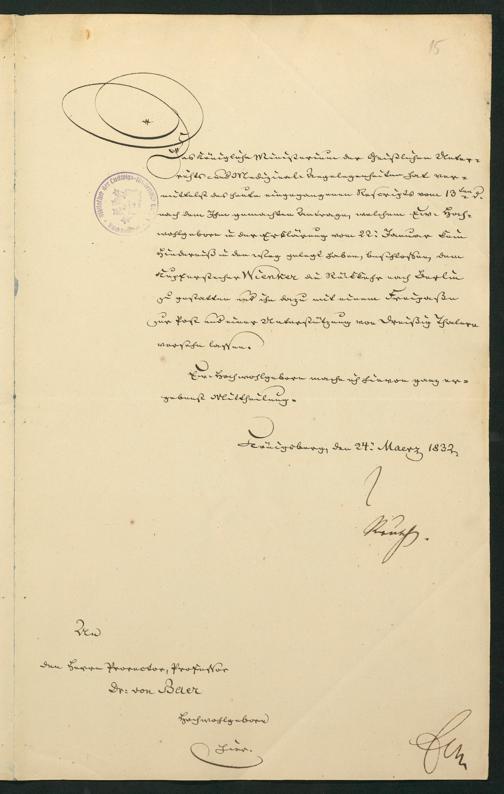 15
Das Königliche Ministerium der Geistlichen Unter-
richts und Medizinal Angelegenheiten hat ver-
mittelst des heute eingegangenen Rescripts vom 13ten d.
nach dem Ihm gemachten Antrage, welchem Ew. Hoch-
wohlgeboren in der Erklärung vom 22. Januar kein
Hinderniß in den Weg gelegt haben, beschlossen, dem
Kupferstecher Wienker die Rückkehr nach Berlin
zu gestatten und ihn dazu mit einem Freipaße
zur Post und einer Unterstützung von Dreißig Thalern
versehn lassen.
Ew. Hochwohlgeboren mache ich hievon ganz er-
gebenst Mittheilung.
Königsberg, den 24. Maerz 1832.
An
den Herrn Prorector, Professor
Dr. von Baer
Hochwohlgeboren
hier.